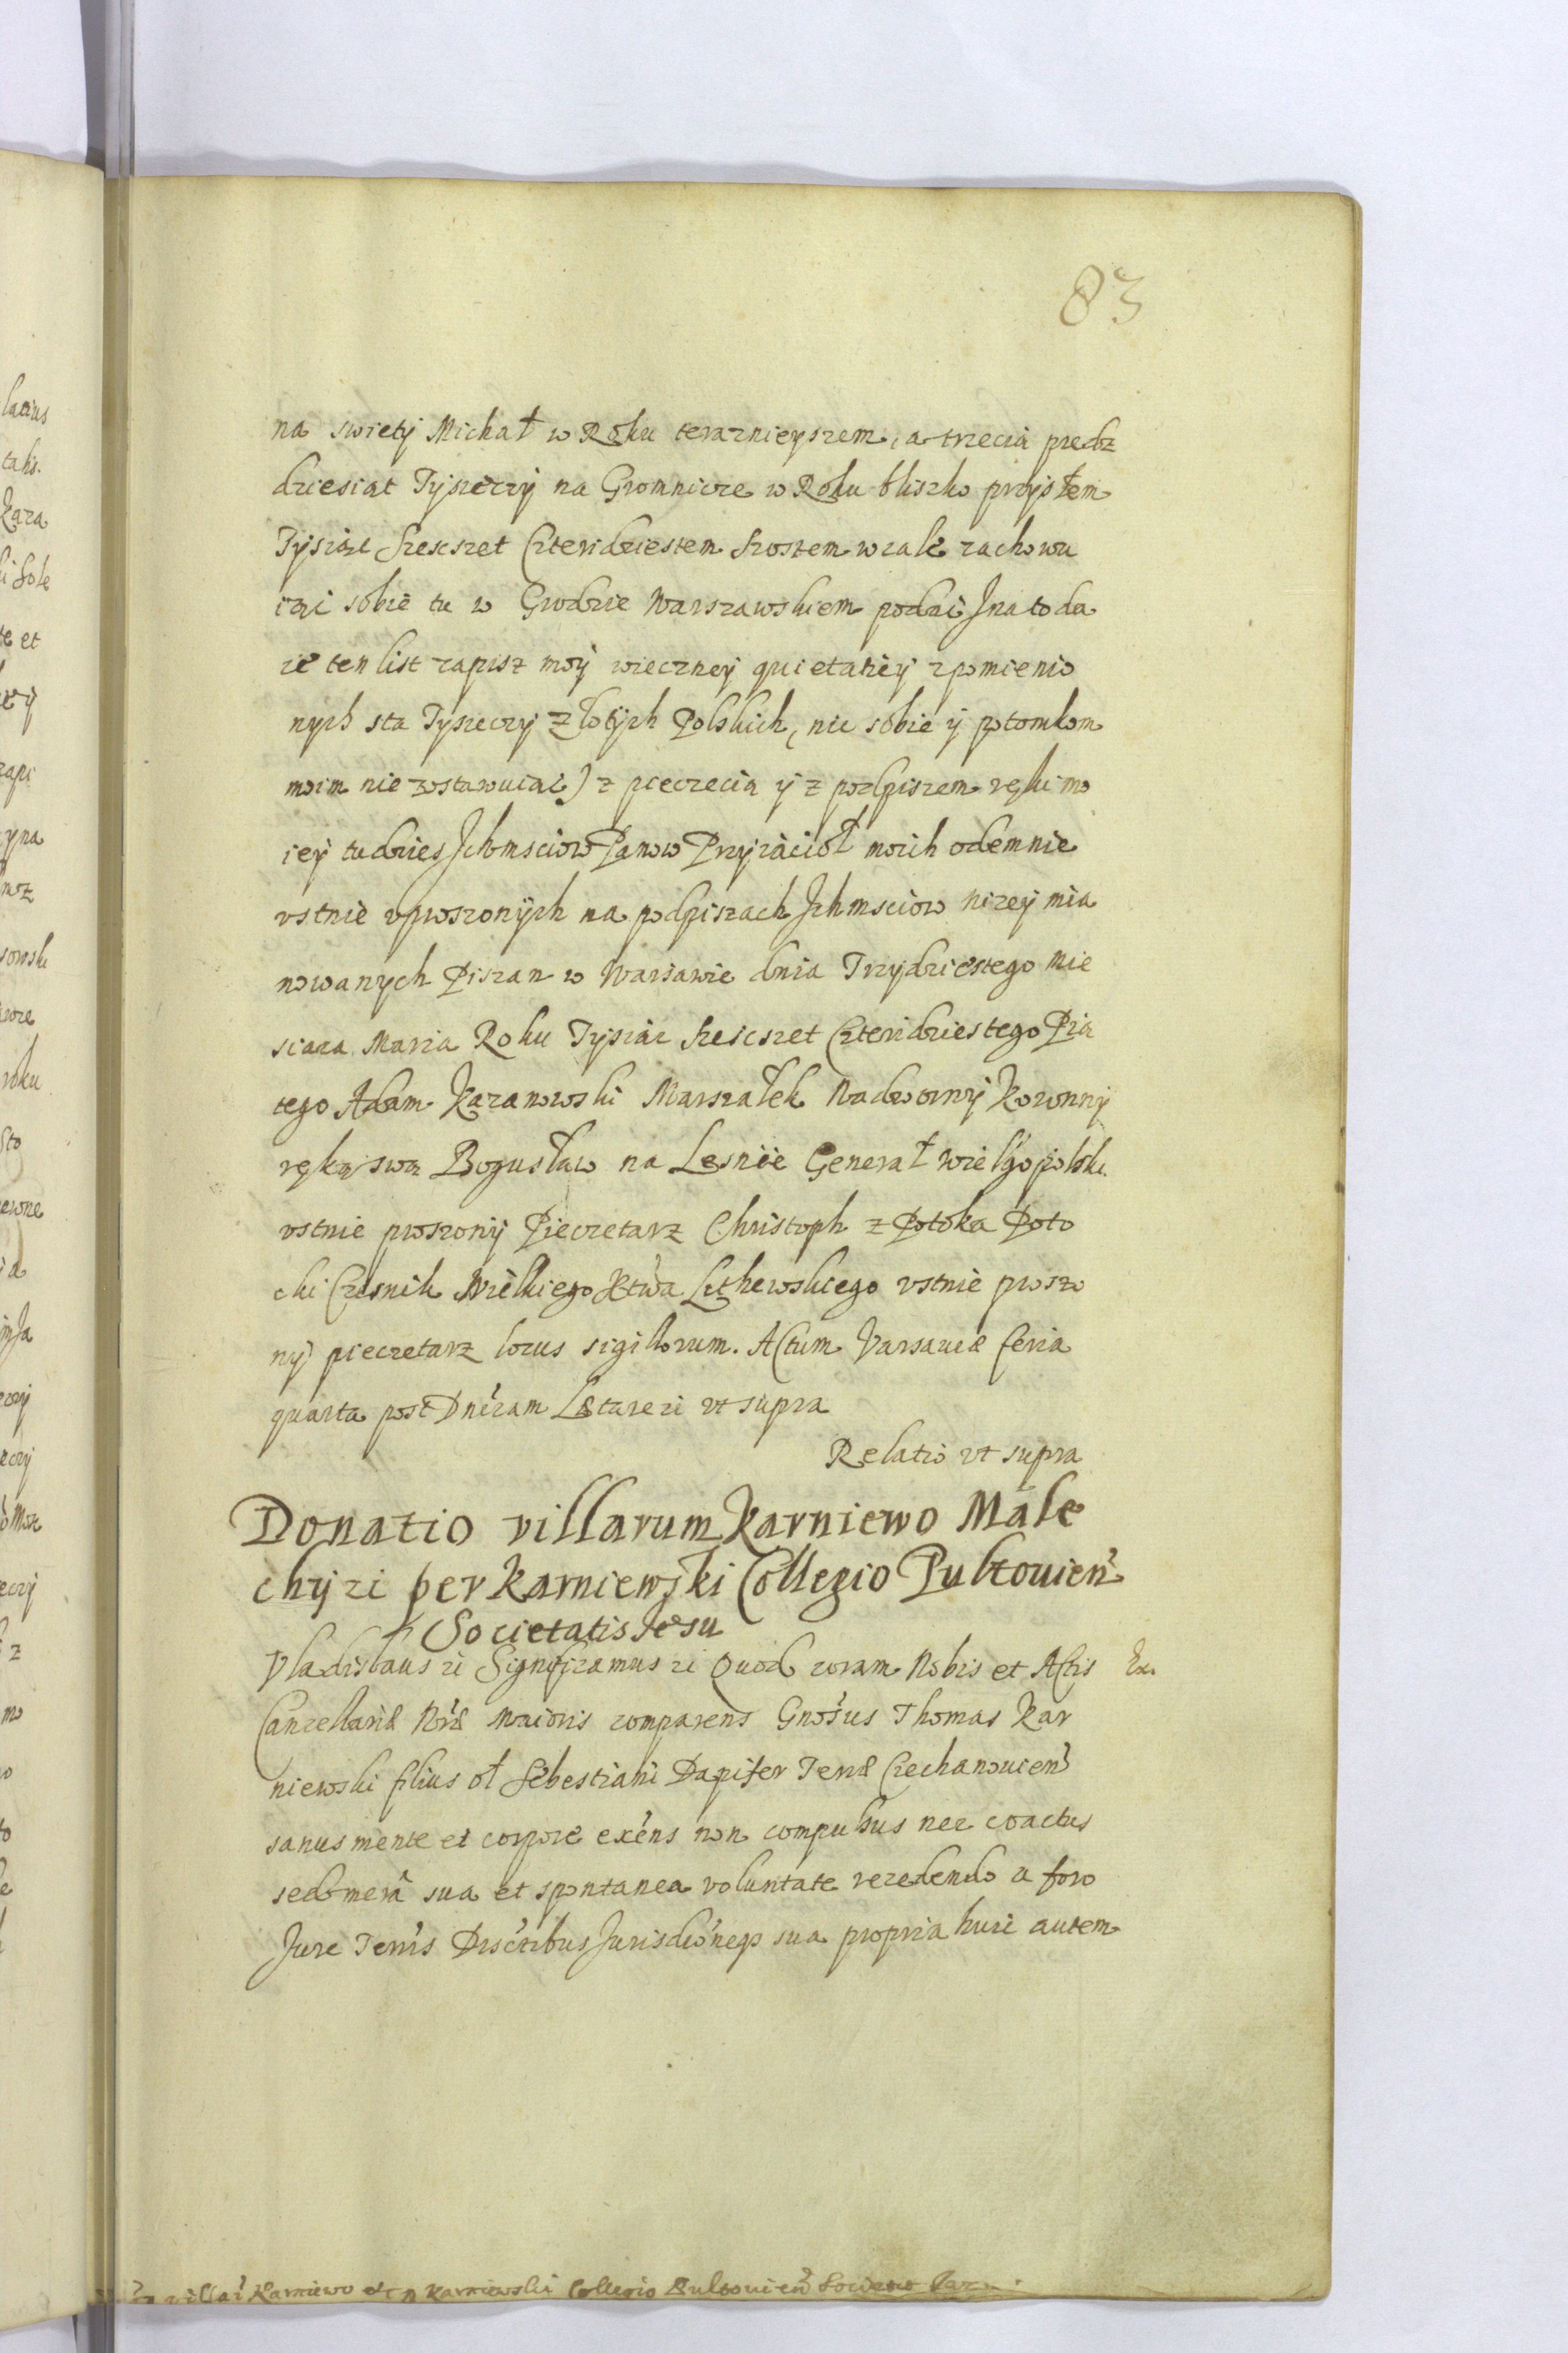 83
na swiety Michał w Roku teraznieyszem, a trzecia piedz
dziesiat Tysieczy na Gromnicze w Roku bliszko przysłem
Tysiąc Szescset Czteridziestem szostem wcale zachowu
iąci sobie tu w Grodzie Warszawskiem podac Ina to da
ie ten list zapisz moy wieczney quietaciey zpomienio
nych sta Tysieczy złotych Polskich, nic sobie y potomkom
moim nie zostawuiąc) z pieczecia y z podpiszem ręki mo
iey tudzies Ichmsciow Panow Przyiacioł moich odemnie
ustnie uproszonych na podpiszach Ichmsciow nizey mia
nowanych Piszan w Warsawie dnia Trzydziestego Mie
siaca Marca Roku Tysiac Szescset Czteridziestego Pia
tego Adam Kazanowski Marszałek Nadworny Koronny
ręką swą Bogusław na Lesnie Generał Wielgopolski
ustnie proszony Pieczetarz Christoph z Potoka Poto
cki Czesnik Wielkiego Xtwa Lithewskiego ustnie proszo
ny pieczetarz locus sigillorum. Actum Varsaviæ feria
quarta post Dnicam Lætare zc ut supra
Relatio ut supra
Donatio villarum Karniewo Male
chy zc per Karniewski Collegio Pultouien
Societatis Jesu
Vladislaus zc Significamus zc Quod coram Nobis et Actis
Ex.
Cancellariæ Nræ Maioris comparens Gnosus Thomas Kar
niewski filius ol Sebestiani Dapifer Terræ Ciechanouien
sanus mente et corpore exens non compulsus nec coactus
sed mera sua et spontanea voluntate recedendo a foro
Jure Terris Disctibus Jurisdioneqs sua propria huic autem
villar Karniewo etc p Karniewski Collegio Pultouien Societ